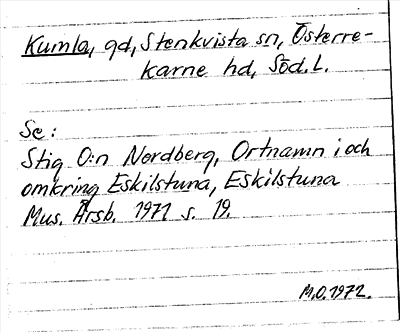 Kumla, gd, Stenkvista sn, Österre-
karne hd, Söd.l.
Se:
Stig O:n Nordberg, Ortnamn i och
omkring Eskilstuna, Eskilstuna
Mus. Årsb. 1971 s. 19.
M.O. 1972.